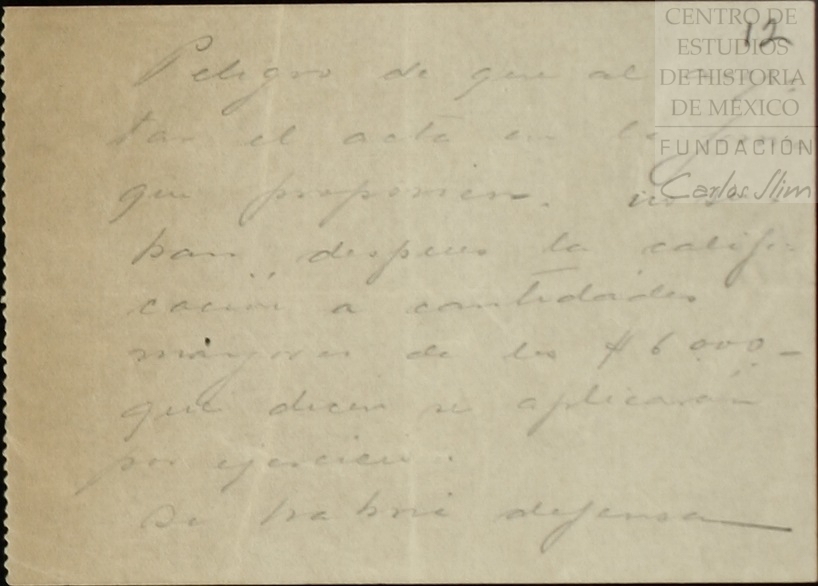 12
CENTRO DE
ESTUDIOS
DE HISTORIA
DE MÉXICO
FUNDACIÓN
Carlos Slim
Peligro de que al
tar el acta en la
que proponen.
han despues la califi-
cación a cantidades
mayores de los $6000-
que dicen se aplicarán
por ejercicio.
Si habrá defensa